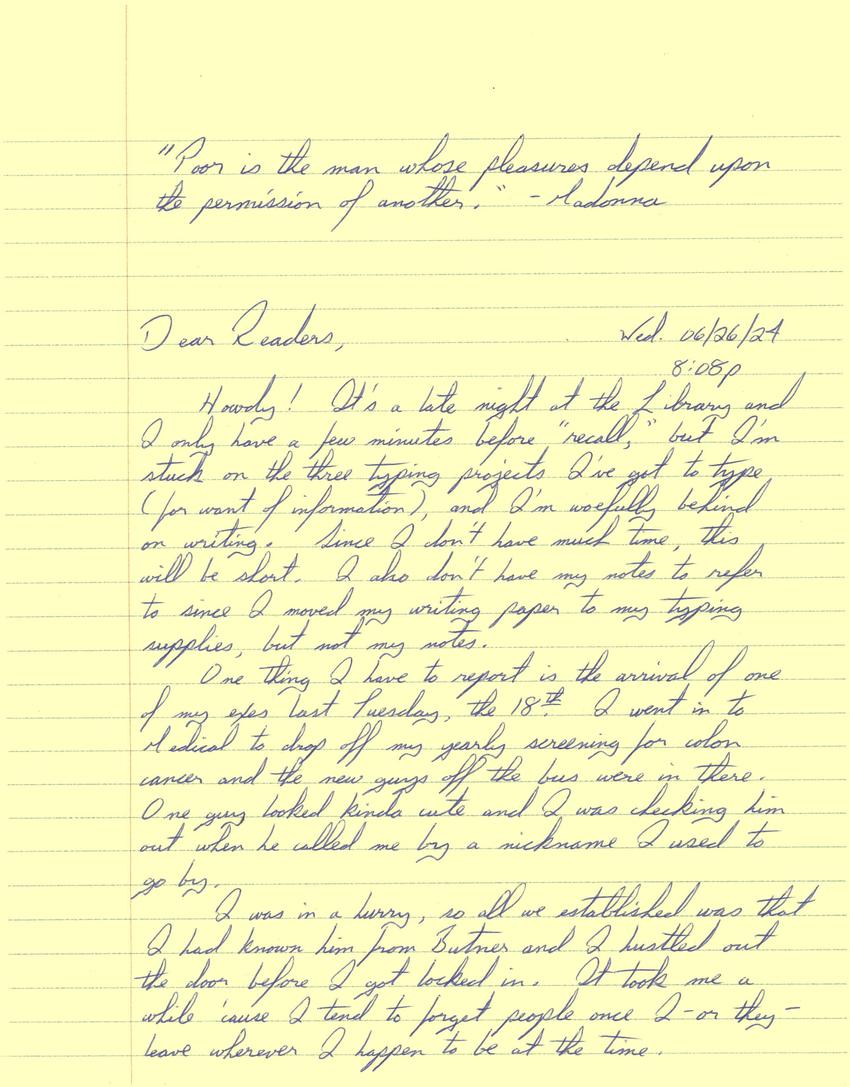 "Poor is the man whose pleasures depend upon
the permission of another." -Madonna
Dear Readers,
Wed. 06/26/24
8:08p
Howdy! It's a late night at the Library and
I only have a few minutes before "recall," but I'm
stuck on the three typing projects I've got to type
(for want of information), and I'm woefully behind
on writing. Since I don't have much time, this
will be short. I also don't have my notes to refer
to since I moved my writing paper to my typing
supplies, but not my notes.
One thing I have to report is the arrival of one
of my exes last Tuesday, the 18th. I went in to
Medical to drop off my yearly screening for colon
cancer and the new guys off the bus were in there.
One guy looked kinda cute and I was checking him
out when he called me by a nickname I used to
go by.
I was in a hurry, so all we established was that
I had known him from Butner and I hustled out
the door before I got locked in. It took me a
while 'cause I tend to forget people once I -or they-
leave wherever I happen to be at the time.